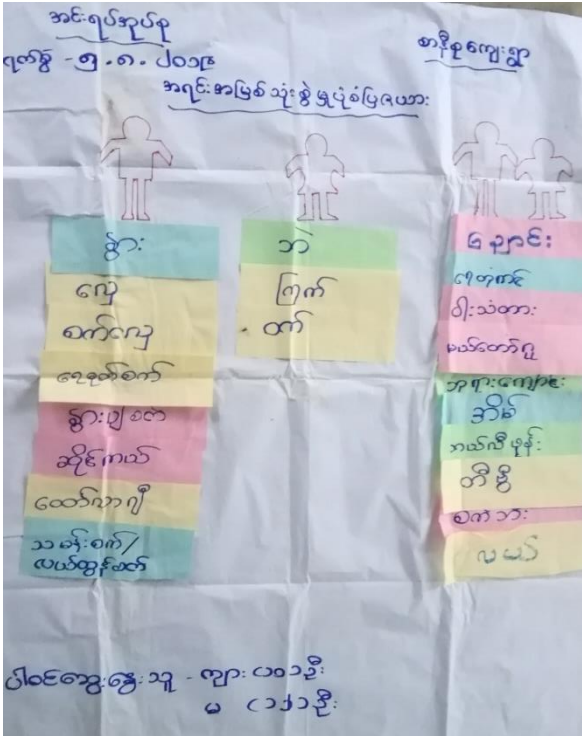 အင်းရပ်အုပ်စု
စာနီစုကျေးရွာ
ရက်စွဲ - ၅.၈.၂၀၁၉
အရင်းအမြစ်သုံးစွဲမှုပုံစံပြဇယား
နွား
လှေ
စက်လှေ
ရေစုတ်စက်
နွားဖျံစတ
ဆိုင်ကယ်
ထော်လာဂျီ
သမန်းစက်/
လယ်ထွန်စက်
ဘဲ
ကြက်
ဝက်
ညောင်း
ရေတုံကင်
ဝါးသံတား
မယ်တော်ရှု
ဘုရားကျောင်း
အိမ်
တယ်လီဖုန်း
တီဗွီ
စက်ဘီး
လမင်
ပါဝင်ဆွေးနွေးသူ - ကျား (၁၀)ဦး
မ (၁၂)ဦး